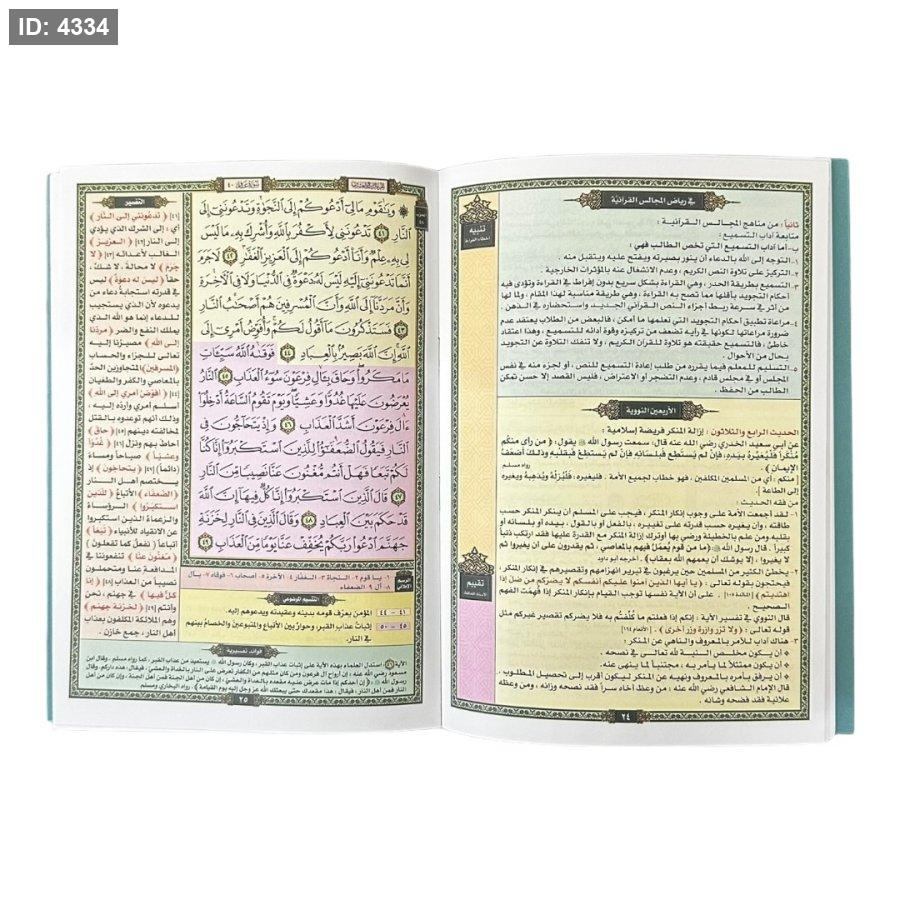 ID: 4334
في رياض المجالس القرآنية
تنبيه
ثانياً: من مناهج المجالس القرآنية:
متابعة آداب التسميع:
ب-أما آداب التسميع التي تخص الطالب فهي:
١.التوجه إلى الله بالدعاء أن ينور بصيرته ويفتح عليه ويتقبل منه.
٢.التركيز على تلاوة النص الكريم، وعدم الانشغال عنه بالمؤثرات الخارجية.
٣.التسميع بطريقة الحدر، وهي القراءة بشكل سريع بدون إفراط في القراءة وتؤدى فيه
أحكام التجويد بأقلها مما تصح به القراءة، وهي طريقة مناسبة لهذا المقام، ولما لها
من أثر في سرعة ربط أجزاء النص القرآني الجديد، واستحضاره في الذهن.
٤.مراعاة تطبيق أحكام التجويد التي تعلمها ما أمكن، فالبعض من الطلاب يعتقد عدم
ضرورة مراعاتها لكونها في رأيه تضعف من تركيزه وقوة أدائه للتسميع، وهذا اعتقاد
خاطئ، فالتسميع حقيقته هو تلاوة للقرآن الكريم، ولا تنفك التلاوة عن التجويد
بحال من الأحوال.
٥.التسليم للمعلم فيما يقرره من طلب إعادة التسميع للنص، أو لجزء منه في نفس
المجلس أو في مجلس قادم، وعدم التضجر أو الاعتراض، فليس القصد إلا حسن تمكن
الطالب من الحفظ.
الأربعين النووية
الحديث الرابع والثلاثون: إزالة المنكر فريضة إسلامية:
عن أبي سعيد الخدري رضي الله عنه قال، سمعت رسول الله ﷺ يقول: (من رأى منكم
منكراً فليغيره بيده، فإن لم يستطع فبلسانه، فإن لم يستطع فبقلبه وذلك أضعف
الإيمان) رواه مسلم
منكم: أي من المسلمين المكلفين، فهو خطاب لجميع الأمة. فليغيره: فليزله ويذهبه ويغيره
إلى الطاعة.
من فقه الحديث:
١- لقد أجمعت الأمة على وجوب إنكار المنكر، فيجب على المسلم أن ينكر المنكر حسب
طاقته، وأن يغيره حسب قدرته على تغييره، بالفعل أو بالقول، بيده أو بلسانه أو
بقلبه ومن علم بالخطيئة ورضي بها أوترك إزالة المنكر مع القدرة عليها فقد ارتكب ذنباً
كبيراً. قال رسول الله ﷺ (ما من قوم يعمل فيهم بالمعاصي، ثم يقدرون على أن يغيروا ثم
لا يغيروا، إلا يوشك أن يعمهم الله بعقاب). أخرجه أبو داود
٢- يخطئ الكثير من المسلمين حين يرغبون في تبرير انهزامهم وتقصيرهم في إنكار المنكر،
فيحتجون بقوله تعالى: (يا أيها الذين آمنوا عليكم أنفسكم لا يضركم من ضل إذا
اهتديتم) [المائدة ١٠٥]. على أن الآية نفسها توجب القيام بإنكار المنكر إذا فهمت الفهم
الصحيح.
تقييم
قال النووي في تفسير الآية: إنكم إذا فعلتم ما كلفتم به فلا يضركم تقصير غيركم مثل
قوله تعالى: (ولا تزر وازرة وزر أخرى). [الأنعام ١٦٤]
٣- هناك آداب للآمر بالمعروف والناهي عن المنكر:
أن يكون مخلص النية لله تعالى في نصحه.
أن يكون ممتثلاً لما يأمر به، مجتنباً لما ينهى عنه.
أن يرفق بأمره بالمعروف ونهيه عن المنكر ليكون أقرب إلى تحصيل المطلوب.
قال الإمام الشافعي رضي الله عنه: من وعظ أخاه سراً فقد نصحه وزانه، ومن وعظه
علانية فقد فضحه وشانه.
٢٤
التفسير
وَيَٰقَوْمِ مَا لِىٓ أَدْعُوكُمْ إِلَى ٱلنَّجَوٰةِ وَتَدْعُونَنِىٓ إِلَى
ٱلنَّارِ ٤١ تَدْعُونَنِى لِأَكْفُرَ بِٱللَّهِ وَأُشْرِكَ بِهِۦ مَا لَيْسَ
لِى بِهِۦ عِلْمٌ وَأَنَا۠ أَدْعُوكُمْ إِلَى ٱلْعَزِيزِ ٱلْغَفَّٰرِ ٤٢ لَا جَرَمَ
أَنَّمَا تَدْعُونَنِىٓ إِلَيْهِ لَيْسَ لَهُۥ دَعْوَةٌ فِى ٱلدُّنْيَا وَلَا فِى ٱلْءَاخِرَةِ
وَأَنَّ مَرَدَّنَآ إِلَى ٱللَّهِ وَأَنَّ ٱلْمُسْرِفِينَ هُمْ أَصْحَٰبُ ٱلنَّارِ
٤٣ فَسَتَذْكُرُونَ مَآ أَقُولُ لَكُمْ وَأُفَوِّضُ أَمْرِىٓ إِلَى
ٱللَّهِ إِنَّ ٱللَّهَ بَصِيرٌۢ بِٱلْعِبَادِ ٤٤ فَوَقَىٰهُ ٱللَّهُ سَيِّـَٔاتِ
مَا مَكَرُوا۟ وَحَاقَ بِـَٔالِ فِرْعَوْنَ سُوٓءُ ٱلْعَذَابِ ٤٥ ٱلنَّارُ
يُعْرَضُونَ عَلَيْهَا غُدُوًّا وَعَشِيًّا وَيَوْمَ تَقُومُ ٱلسَّاعَةُ أَدْخِلُوٓا۟
ءَالَ فِرْعَوْنَ أَشَدَّ ٱلْعَذَابِ ٤٦ وَإِذْ يَتَحَآجُّونَ فِى
ٱلنَّارِ فَيَقُولُ ٱلضُّعَفَٰٓؤُا۟ لِلَّذِينَ ٱسْتَكْبَرُوٓا۟ إِنَّا كُنَّا
لَكُمْ تَبَعًا فَهَلْ أَنتُم مُّغْنُونَ عَنَّا نَصِيبًا مِّنَ ٱلنَّارِ
٤٧ قَالَ ٱلَّذِينَ ٱسْتَكْبَرُوٓا۟ إِنَّا كُلٌّ فِيهَآ إِنَّ ٱللَّهَ
قَدْ حَكَمَ بَيْنَ ٱلْعِبَادِ ٤٨ وَقَالَ ٱلَّذِينَ فِى ٱلنَّارِ لِخَزَنَةِ
جَهَنَّمَ ٱدْعُوا۟ رَبَّكُمْ يُخَفِّفْ عَنَّا يَوْمًا مِّنَ ٱلْعَذَابِ ٤٩
[٤١] (تدعونني إلى النار)
أي: إلى الشرك الذي يؤدي
إلى النار [٤٢] (العزيز)
الغالب لأعدائه [٤٣] (لا
جرم) لا محالة، لا شك،
حقاً (ليس له دعوة) ليس
في قدرته استجابة دعاء من
يدعوه لأن الذي يستجيب
للدعاء إنما هو الله الذي
يملك النفع والضر (مردنا
إلى الله) مصيرنا إليه
تعالى للجزاء والحساب
(المسرفين) المتجاوزين الحد
بالمعاصي والكفر والطغيان
[٤٤] (أفوض أمري إلى الله)
أسلم أمري وأرده إليه،
وذلك أنهم توعدوه بالقتل
لمخالفته دينهم [٤٥] (حاق)
أحاط بهم ونزل [٤٦] (غدوا
وعشيا) صباحاً ومساءً
(دائماً) [٤٧] (يتحاجون) إذ
يختصم أهل النار
(الضعفاء) الأتباع (للذين
استكبروا) الرؤساء
والزعماء الذين استكبروا
عن الانقياد للأنبياء (تبعاً)
أتباعاً (نفعل كما تفعلون)
(مغنون عنا) تنفعوننا في
المدافعة عنا ومتحملون
نصيباً من العذاب [٤٨] (إنا
كل فيها) في جهنم، نحن
وأنتم [٤٩] (لخزنة جهنم)
وهم الملائكة المكلفون بعذاب
أهل النار، جمع خازن.
الرسم الإملائي
١- يا قوم ٢- النجاة ٣- الغفار ٤- الآخرة ٥- أصحاب ٦- فوقاه ٧- بآل
٨- آل ٩- الضعفاء
التقسيم الموضوعي
٤١ - ٤٤ المؤمن يعرّف قومه بدينه وعقيدته ويدعوهم إليه.
٤٥ - ٥٠ إثبات عذاب القبر، وحوارٌ بين الأتباع والمتبوعين والخصامُ بينهم
في النار.
فوائد تفسيرية
٢٥